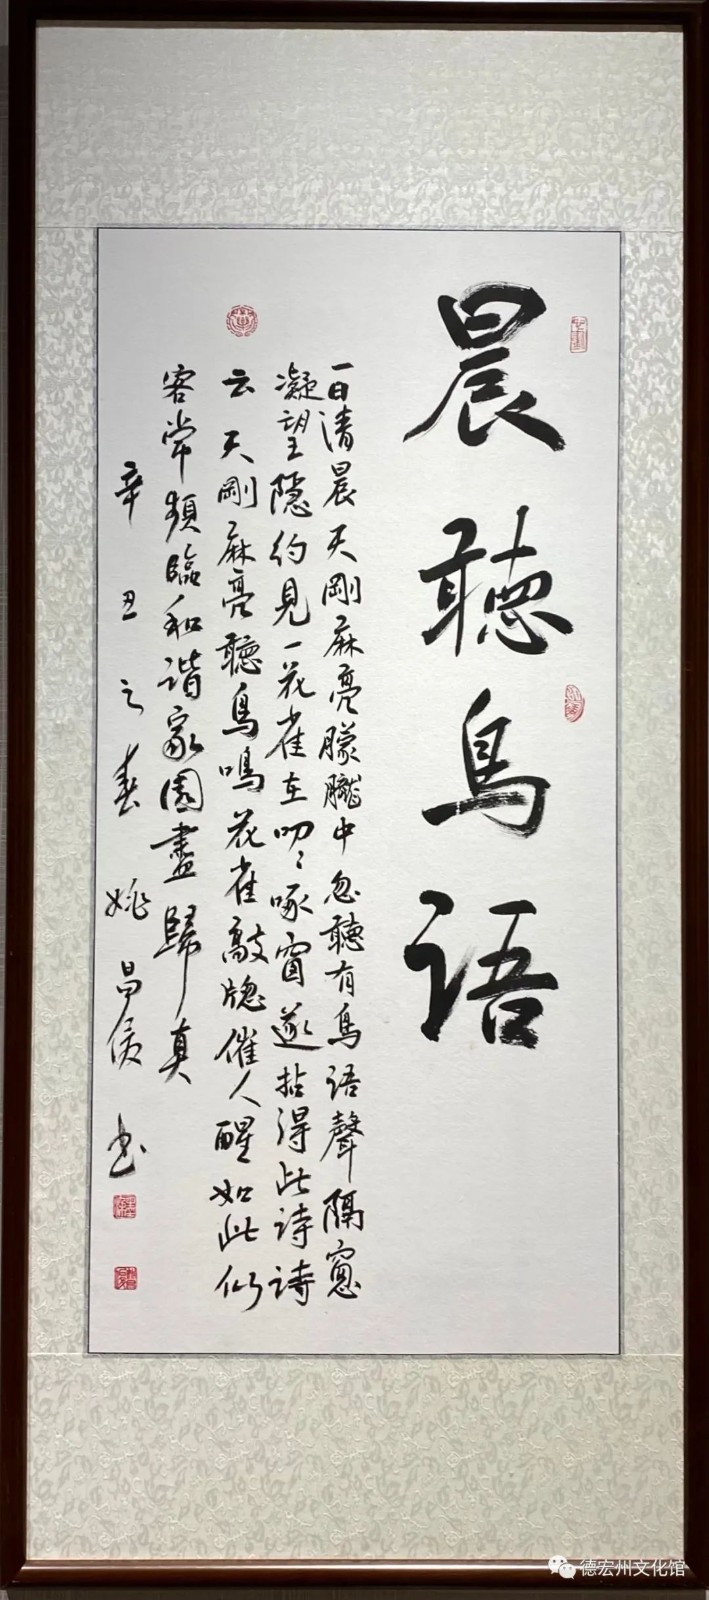 晨聽鳥语
一日清晨天剛麻亮朦朧中忽聽有鳥语聲隔窗
凝望隐约見一花雀在叨〻啄窗遂拈得此诗诗
云天剛麻亮聽鳥鳴花雀敲牕催人醒如此仙
客常頻臨和谐家園盡歸真
辛丑之春姚昌侯书
德宏州文化馆